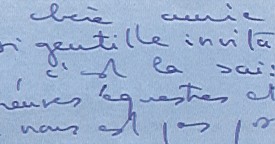 chère amie
si gentille invita
c'est la sai
épreuves équestres et
nous est pas po